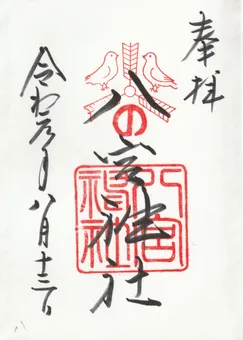 奉拝
八の宮神社
八宮
神社
令和元年八月十三日